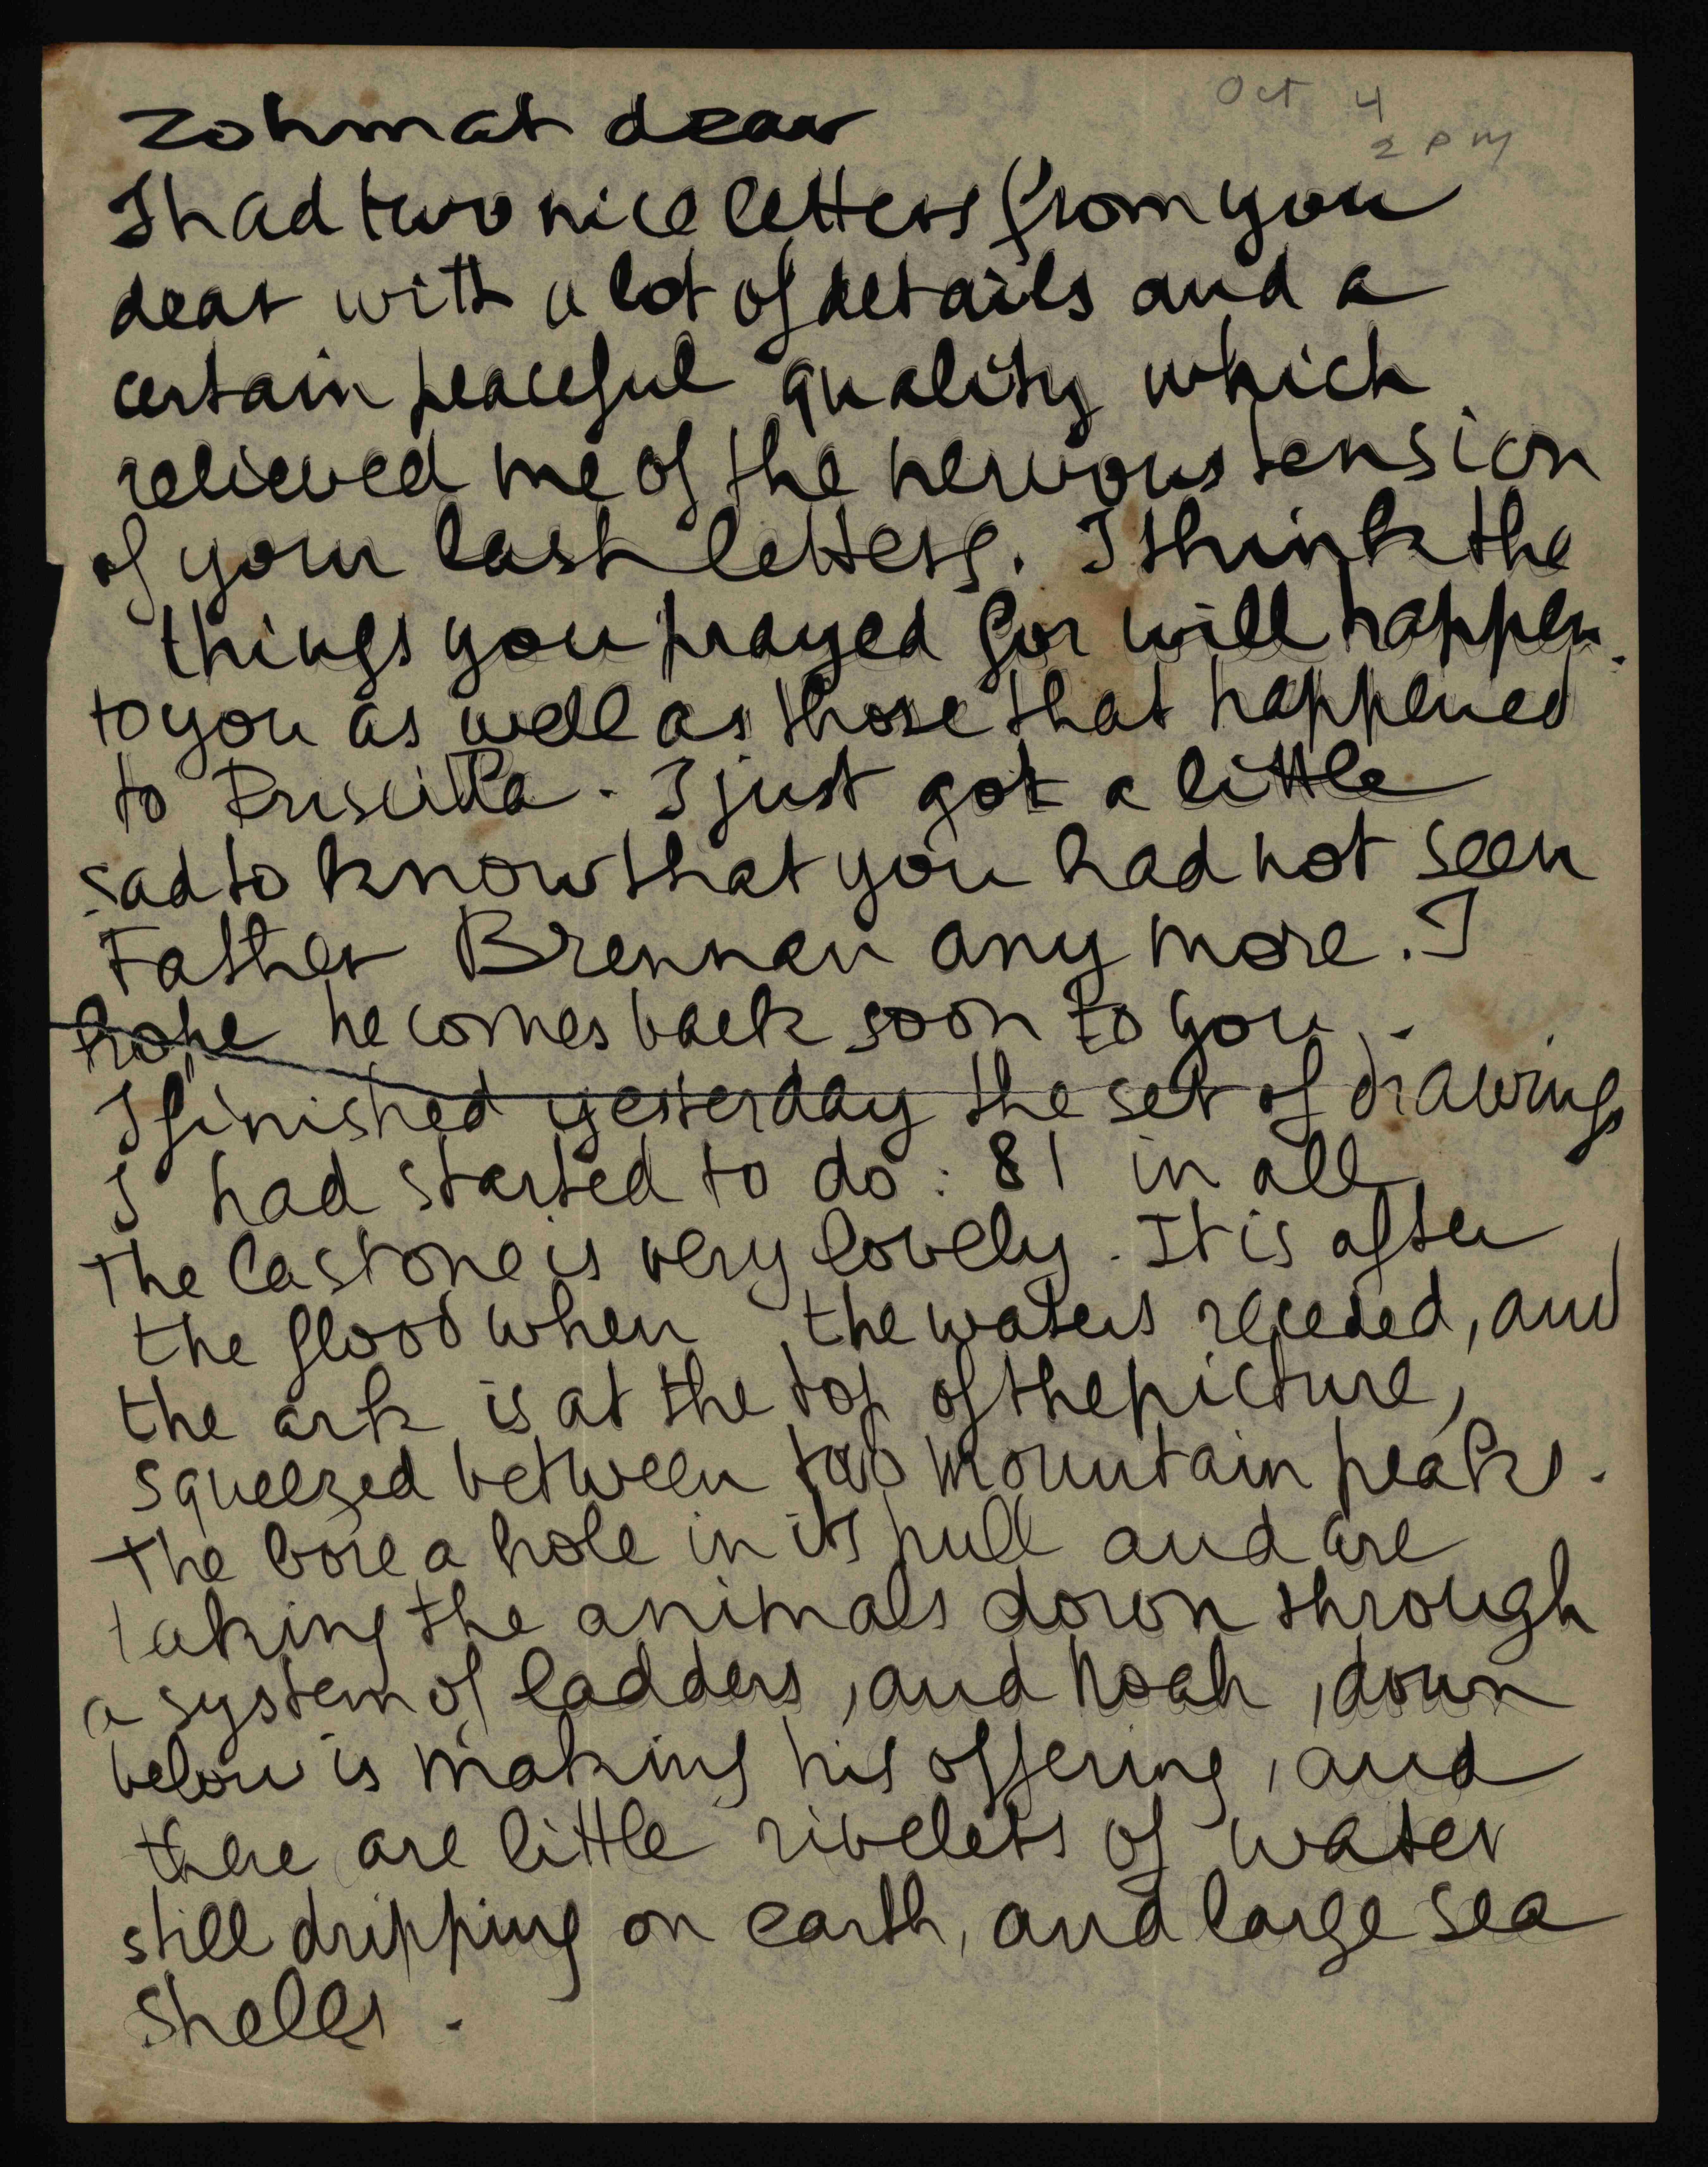 Oct 4
2 PM
Zohmah dear
I had two nice letters from you
dear with a lot of details and a
certain peaceful quality which
relieved me of the nervous tension
of your last letters. I think the
things you prayed for will happen
to you as well as those that happened
to Priscilla. I just got a little
sad to know that you had not seen
Father Brennan any more. I
hope he comes back soon to you.
I finished yesterday the set of drawings
I had started to do: 81 in all
The last one is very lovely. It is after
the flood when the waters receded, and
the ark is at the top of the picture,
squeezed between two mountain peaks.
The bore a hole in its hull and are
taking the animals down through
a system of ladders, and Noah, down
below is making his offering, and
there are little rivelets of water
still dripping on earth, and large sea
shells.